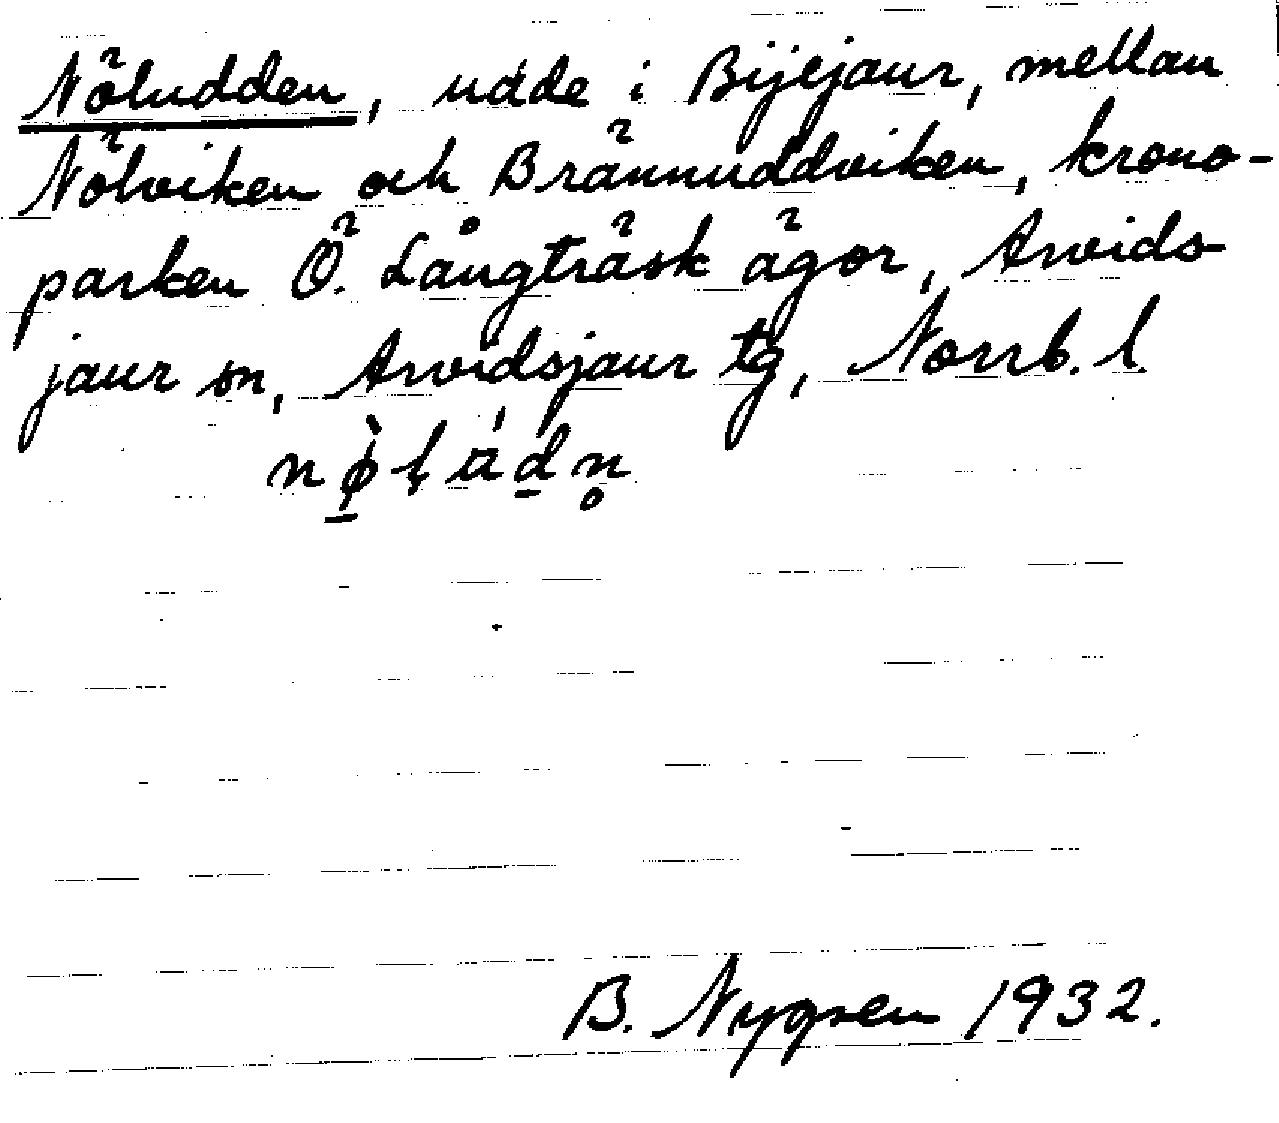 Nöludden, udde i Bijejaur, mellan
Nölviken och Brännuddviken, krono-
parken Ö. Långträsk ägor, Arvids-
jaur sn, Arvidsjaur tg, Norrb. l.
B. Nygren 1932.